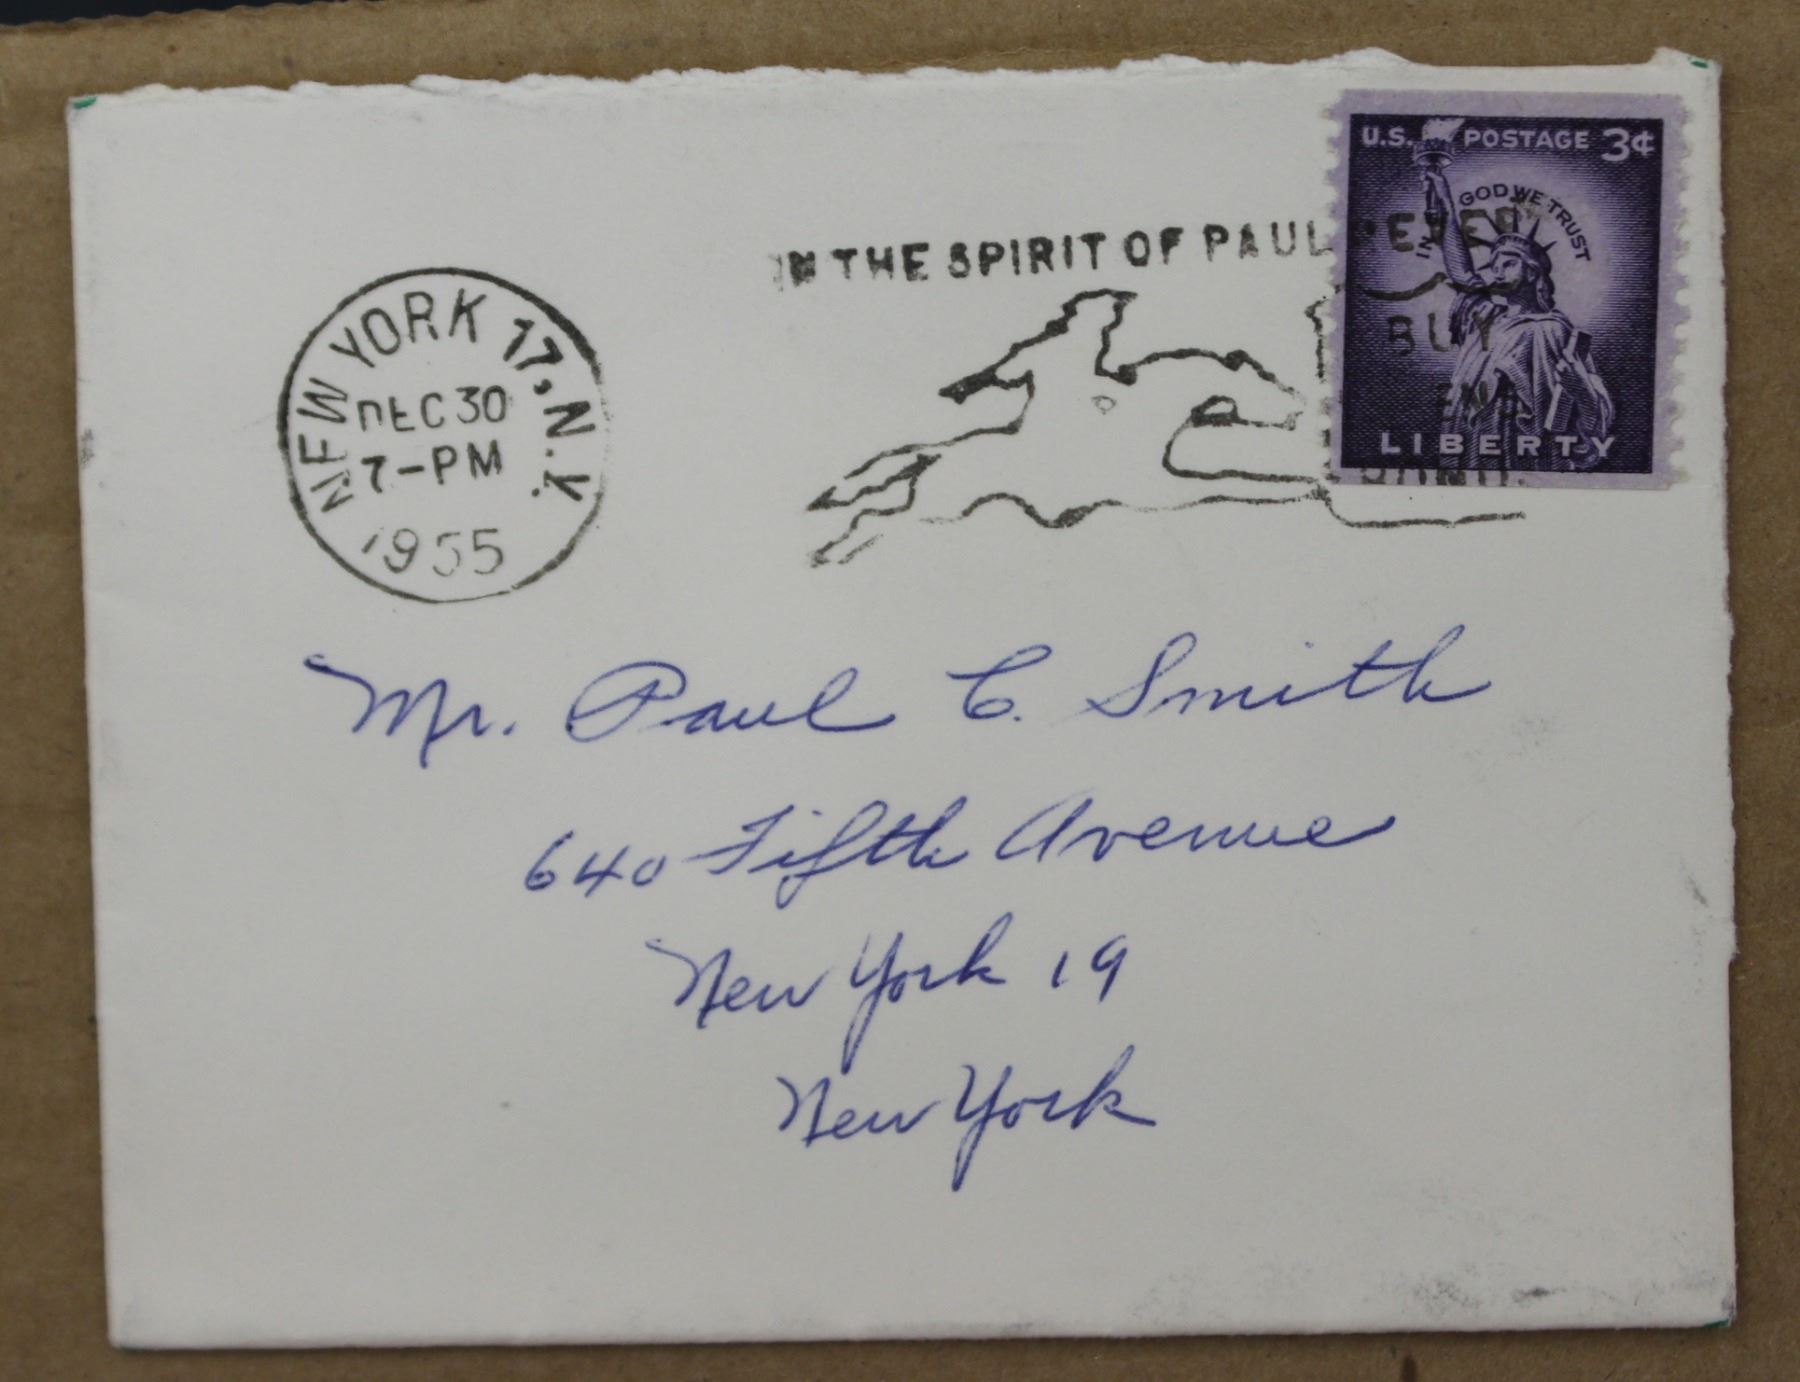 U.S. POSTAGE 3¢
IN GOD WE TRUST
LIBERTY
IN THE SPIRIT OF PAUL REVERE
BUY
NEW YORK 17, N.Y.
DEC 30
7-PM
1955
Mr. Paul C. Smith
640 Fifth Avenue
New York 19
New York